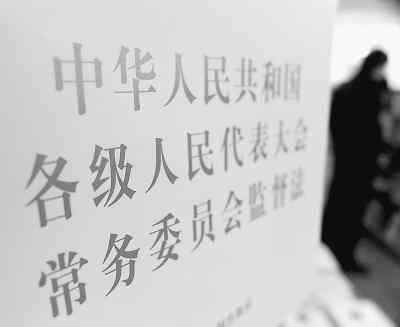 中华人民共和国
各级人民代表大会
常务委员会监督法